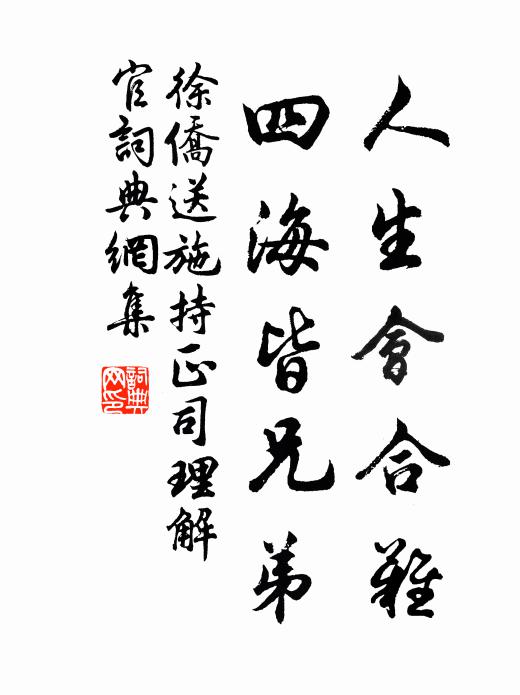 人生會合難
四海皆兄弟
徐僑送施持正司理解
官詞典網集
詞典
网印